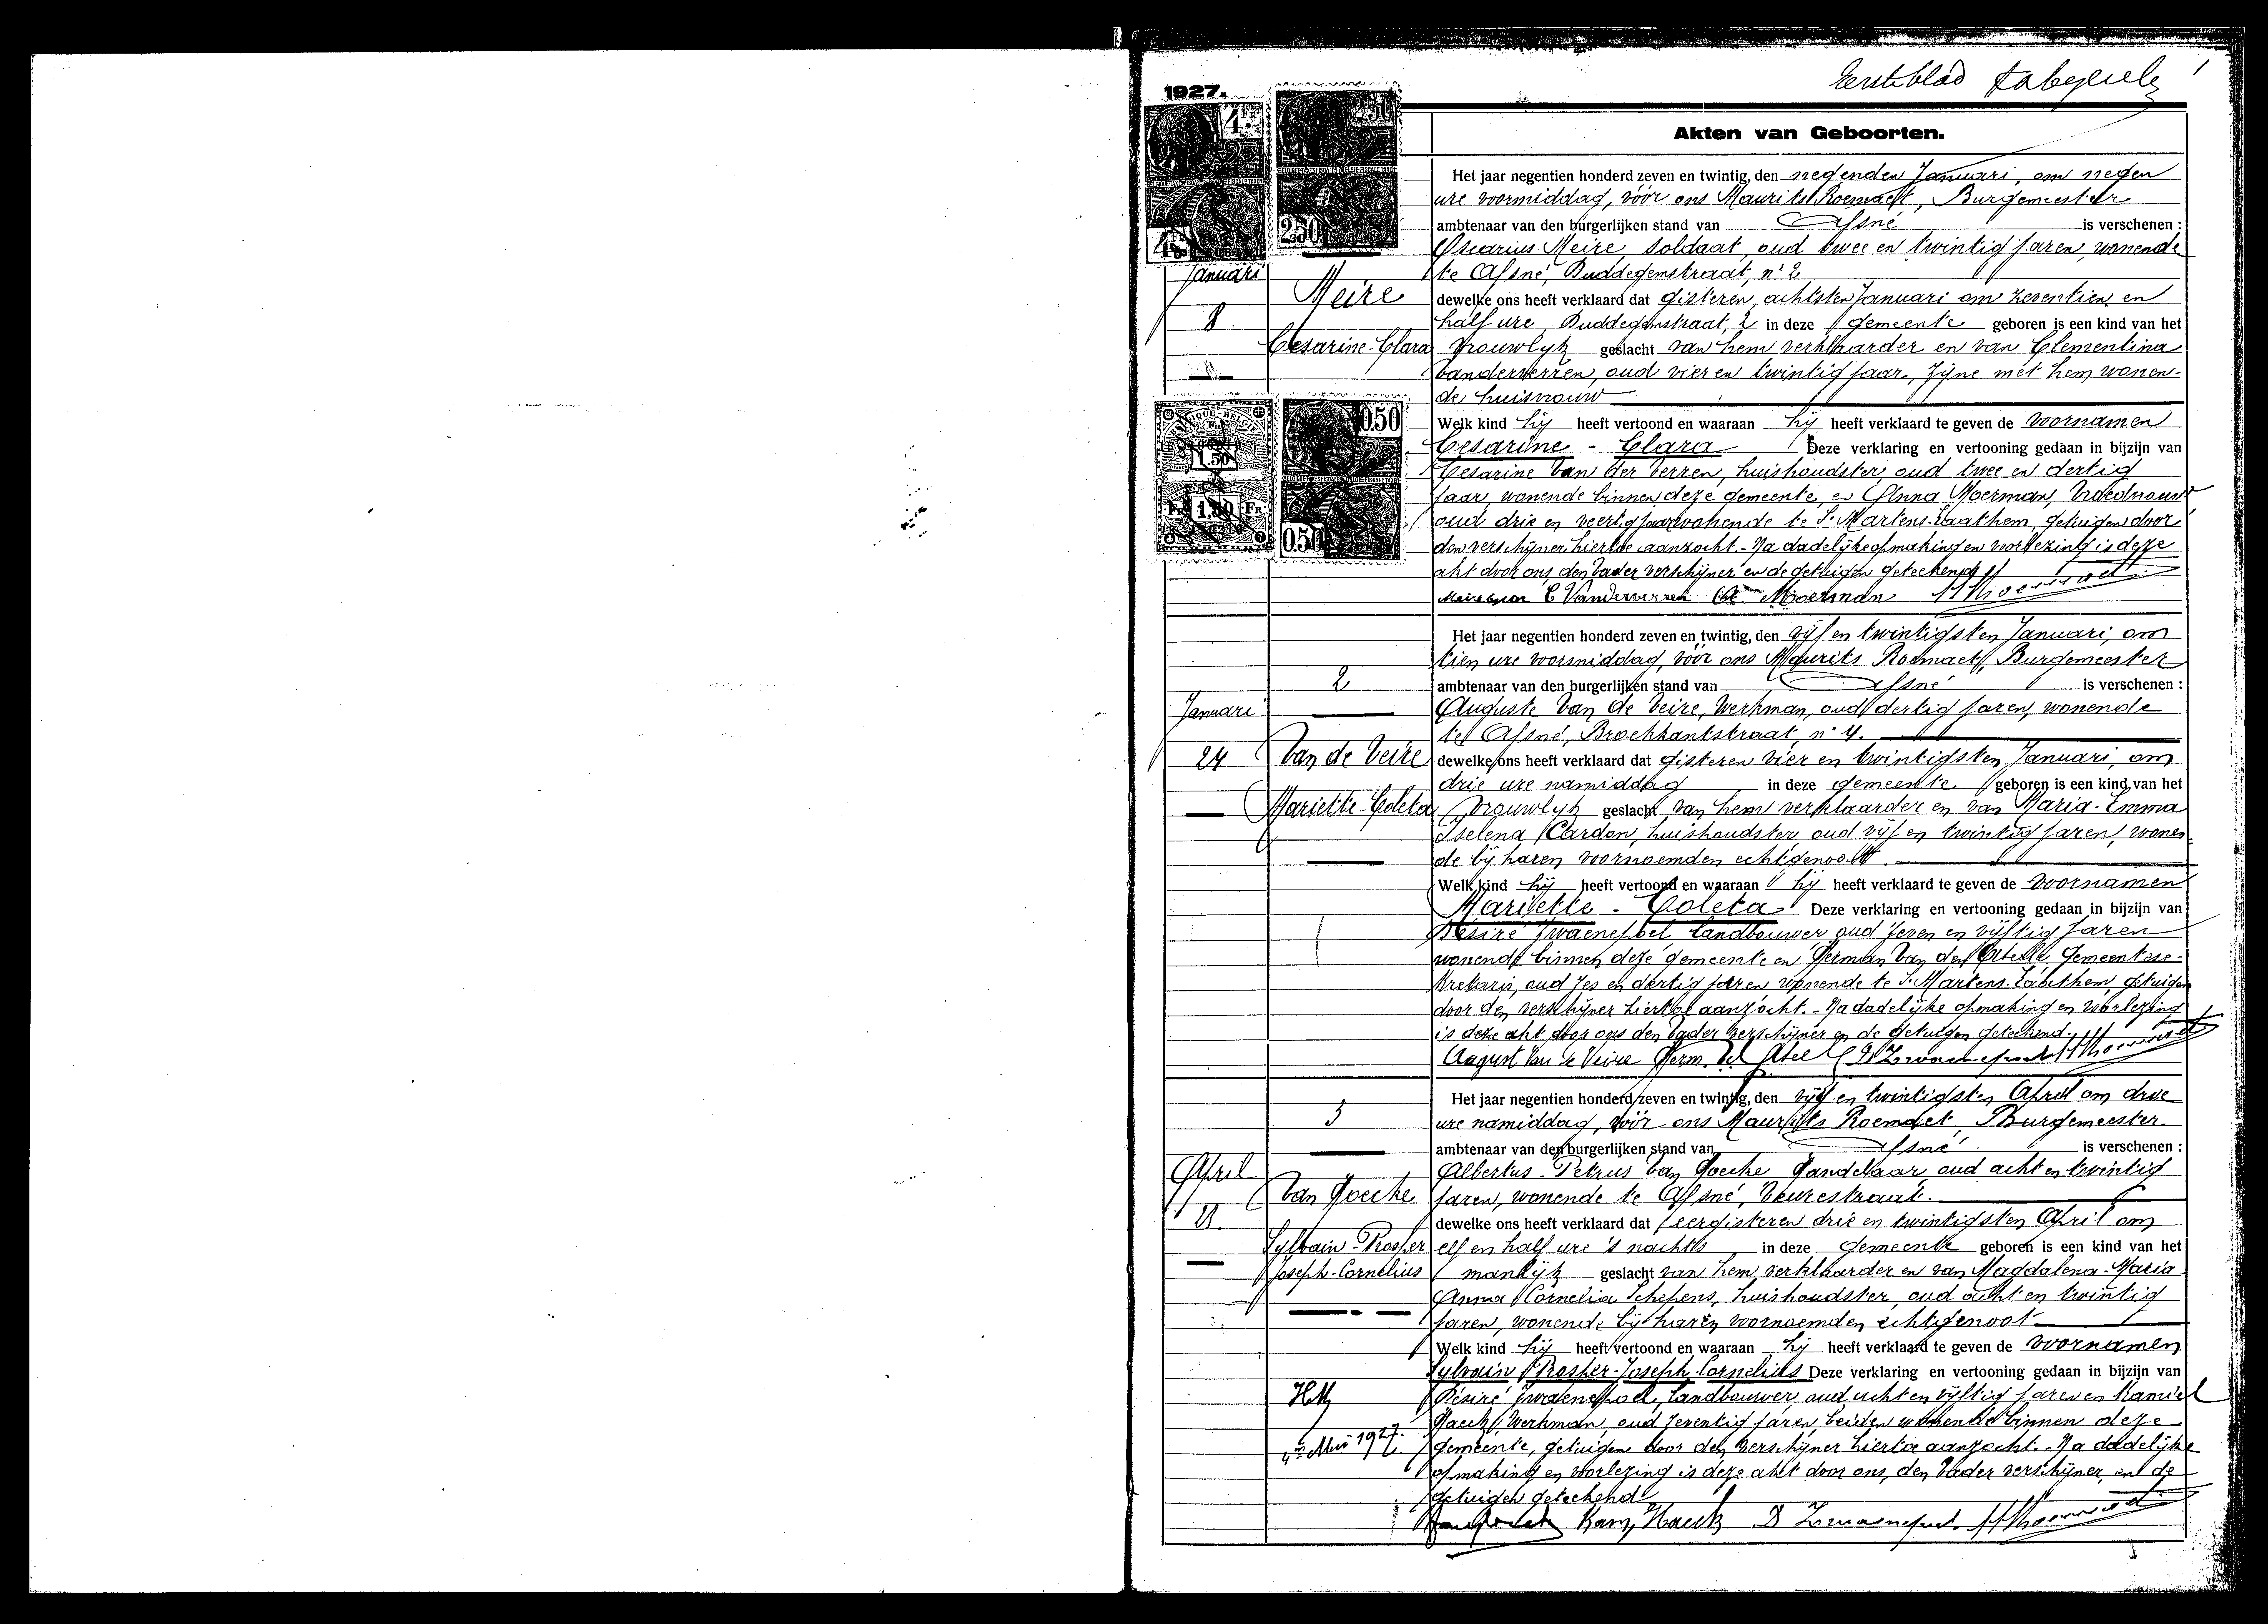 Eerste blad
1
1927.
Akten van Geboorten.
4 FR
2.50
4 FR
2.50
Januari
8
Meire
Cesarine-Clara
Het jaar negentien honderd zeven en twintig, den negenden Januari, om negen
ure voormiddag, vóór ons Maurits Roemaet, Burgemeester
ambtenaar van den burgerlijken stand van Afsné is verschenen :
Oscarius Meire, soldaat, oud twee en twintig jaren, wonende
te Afsné, Buddegemstraat, n° 2
dewelke ons heeft verklaard dat gisteren, achtsten Januari om zeventien en
half ure, Buddegemstraat, 2 in deze gemeente geboren is een kind van het
vrouwlijk geslacht van hem verklaarder en van Clementina
Vanderverren, oud vier en twintig jaar, zijne met hem wonen-
de huisvrouw
BELGIQUE-BELGIË
1.50
FR 1.50 FR
0.50
0.50
Welk kind hij heeft vertoond en waaraan hij heeft verklaard te geven de voornamen
Cesarine - Clara Deze verklaring en vertooning gedaan in bijzijn van
Cesarine Van der Verren, huishoudster, oud twee en dertig
jaar, wonende binnen deze gemeente, en Anna Moerman, Vroedvrouw
oud drie en veertig jaar wonende te St Martens-Laathem, getuigen door
den verschijner hiertoe aanzocht. - Na dadelijke opmaking en voorlezing is deze
akt door ons, den Vader verschijner en de getuigen geteekend
C Vanderverren Moerman
2
Januari
24
Van de Veire
Mariette-Coleta
Het jaar negentien honderd zeven en twintig, den vijf en twintigsten Januari, om
tien ure voormiddag, vóór ons Maurits Roemaet, Burgemeester
ambtenaar van den burgerlijken stand van Afsné is verschenen :
Auguste Van de Veire, Werkman, oud dertig jaren, wonende
te Afsné, Broekkantstraat, n° 4.
dewelke ons heeft verklaard dat gisteren vier en twintigsten Januari, om
drie ure namiddag in deze gemeente geboren is een kind van het
vrouwlijk geslacht van hem verklaarder en van Maria-Emma
Iselena Cardon, huishoudster, oud vijf en twintig jaren, wonen-
de bij haren voornoemden echtgenoot
Welk kind hij heeft vertoond en waaraan hij heeft verklaard te geven de voornamen
Mariette - Coleta Deze verklaring en vertooning gedaan in bijzijn van
Desiré Zwaenepoel, landbouwer, oud zeven en vijftig jaren
wonende binnen deze gemeente en German Van den Abeele Gemeentese-
kretaris, oud zes en dertig jaren wonende te St Martens-Laathem, getuigen
door den verschijner hiertoe aanzocht. - Na dadelijke opmaking en voorlezing
is deze akt door ons den Vader verschijner en de getuigen geteekend.
August Van de Veire Germ. Vd Abeel D Zwaenepoel
3
April
23
Van Hoecke
Sylvain-Prosper
Joseph-Cornelius
Het jaar negentien honderd zeven en twintig, den vijf en twintigsten April om drie
ure namiddag, vóór ons Maurits Roemaet, Burgemeester
ambtenaar van den burgerlijken stand van Afsné is verschenen :
Albertus-Petrus Van Hoecke Handelaar, oud acht en twintig
jaren, wonende te Afsné, Veurestraat.
dewelke ons heeft verklaard dat eergisteren drie en twintigsten April om
elf en half ure 's nachts in deze gemeente geboren is een kind van het
manlijk geslacht van hem verklaarder en van Magdalena-Maria
Anna Cornelia Schepens, huishoudster, oud acht en twintig
jaren, wonende bij haren voornoemden echtgenoot
Welk kind hij heeft vertoond en waaraan hij heeft verklaard te geven de voornamen
Sylvain Prosper-Joseph-Cornelius Deze verklaring en vertooning gedaan in bijzijn van
Désiré Zwaenepoel, Landbouwer, oud acht en vijftig jaren en Kamiel
Haeck, Werkman, oud zeventig jaren, beiden wonende binnen deze
gemeente, getuigen door den verschijner hiertoe aanzocht. - Na dadelijke
opmaking en voorlezing is deze akt door ons, den Vader verschijner, en de
getuigen geteekend
4 Mei 1927.
Kam, Haeck D Zwaenepoel